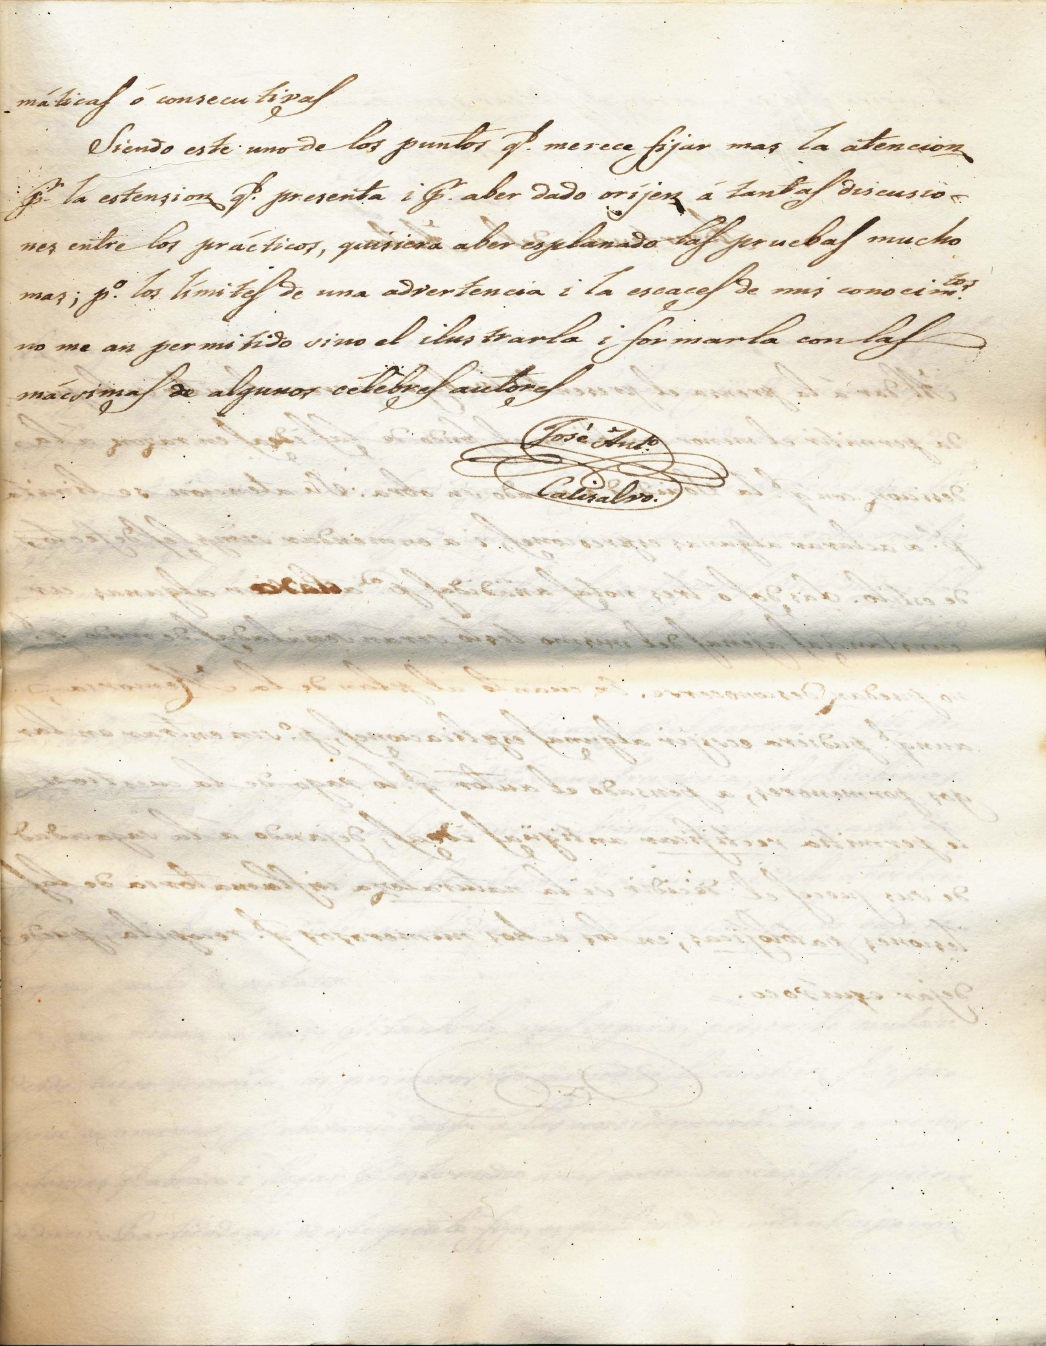 máticas ó consecutivas
Siendo este uno de los puntos qe. merece fijar mas la atencion
pr. la estension qe. presenta i pr. aber dado oríjen á tantas discusio-
nes entre los prácticos, quisiera aber esplanado las pruebas mucho
mas; po. los límites de una advertencia i la escaces de mis conocimtos.
no me an permitido sino el ilustrarla i formarla con las
mácsimas de algunos célébres autores
José Anto.
Calisalvo.